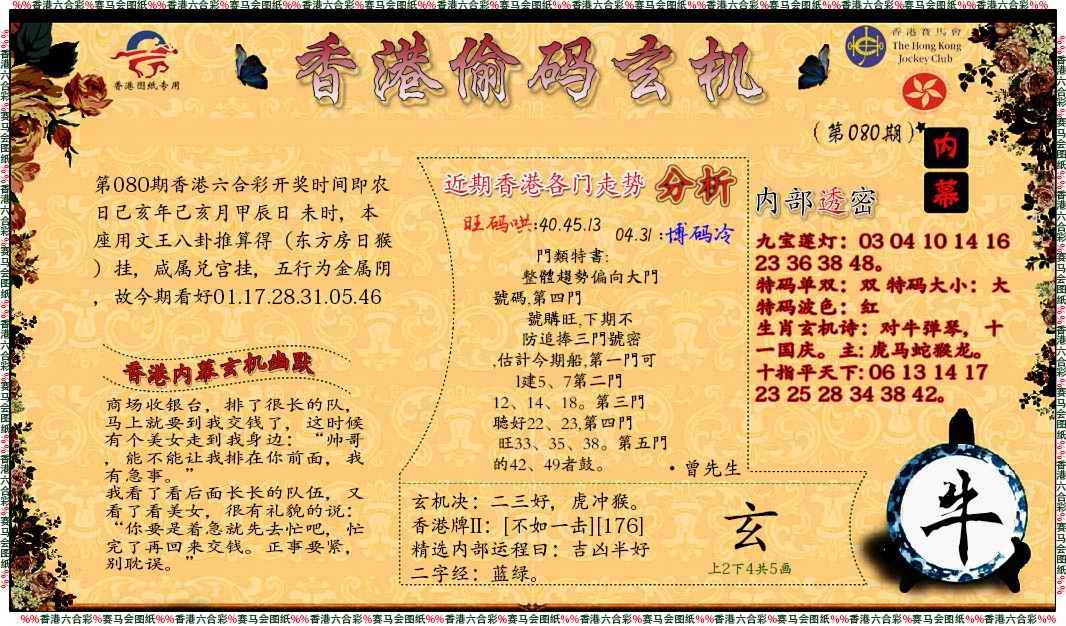 %%香港六合彩%赛马会图纸%%香港六合彩%赛马会图纸%%香港六合彩%赛马会图纸%%香港六合彩%赛马会图纸%%香港六合彩%赛马会图纸%%香港六合彩%赛马会图纸%%香港六合彩%赛马会图纸%%香港六合彩%%
香港图纸专用
香港偷码玄机
香港賽馬會
The Hong Kong
Jockey Club
(第080期)
内
幕
第080期香港六合彩开奖时间即农
日己亥年己亥月甲辰日 未时，本
座用文王八卦推算得（东方房日猴
）挂，咸属兑宫挂，五行为金属阴
，故今期看好01.17.28.31.05.46
香港内幕玄机幽默
商场收银台，排了很长的队，
马上就要到我交钱了，这时候
有个美女走到我身边：“帅哥
，能不能让我排在你前面，我
有急事。”
我看了看后面长长的队伍，又
看了看美女，很有礼貌的说：
“你要是着急就先去忙吧，忙
完了再回来交钱。正事要紧，
别耽误。”
近期香港各门走势 分析
旺码哄:40.45.13
04.31 :博码冷
門類特書:
整體趨勢偏向大門
號碼,第四門
號購旺,下期不
防追捧三門號密
,估計今期船,第一門可
1建5、7第二門
12、14、18。第三門
聽好22、23,第四門
旺33、35、38。第五門
的42、49者鼓。
·曾先生
内部透密
九宝莲灯：03 04 10 14 16
23 36 38 48。
特码单双：双 特码大小：大
特码波色：红
生肖玄机诗：对牛弹琴，十
一国庆。主:虎马蛇猴龙。
十指平天下:06 13 14 17
23 25 28 34 38 42。
玄机决：二三好，虎冲猴。
香港牌II：[不如一击][176]
精选内部运程曰：吉凶半好
二字经：蓝绿。
玄
上2下4共5画
牛
%%香港六合彩%赛马会图纸%%香港六合彩%赛马会图纸%%香港六合彩%赛马会图纸%%香港六合彩%赛马会图纸%%香港六合彩%赛马会图纸%%香港六合彩%赛马会图纸%%香港六合彩%赛马会图纸%%香港六合彩%%